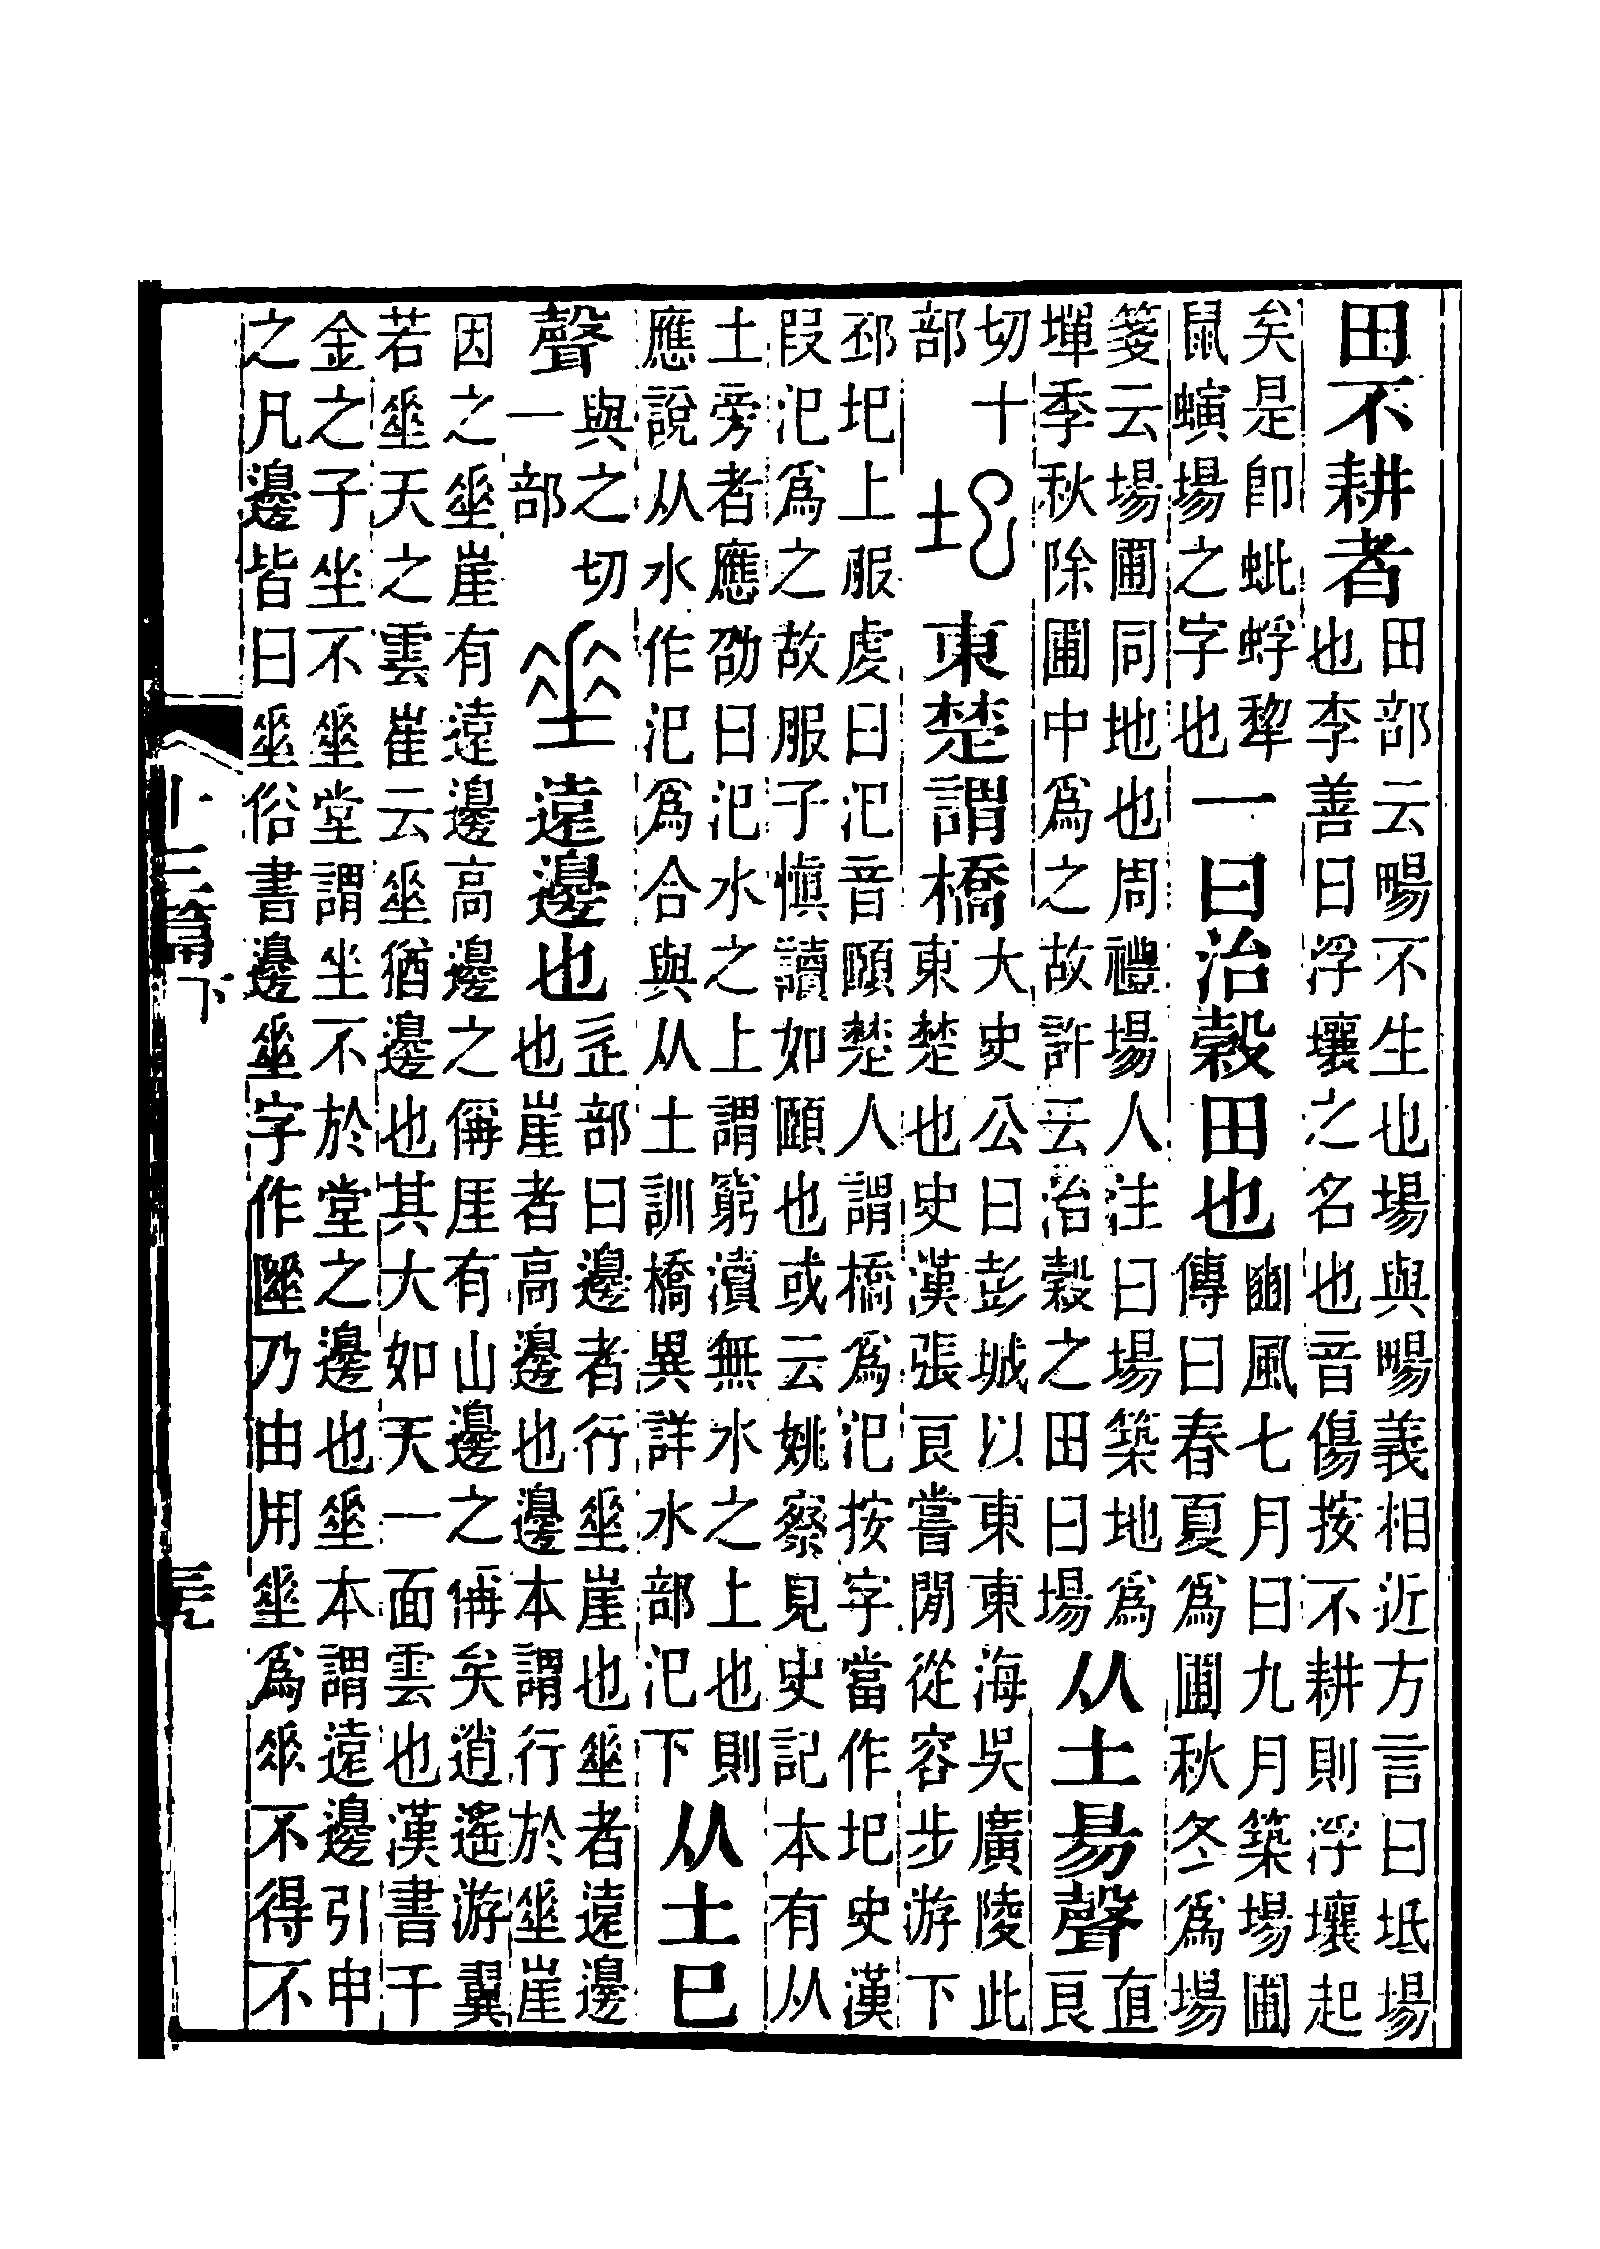 田不耕者
田部云畼不生也場與畼義相近方言曰坻場
也李善曰浮壤之名也音傷按不耕則浮壤起
矣是卽蚍蜉犂
鼠螾場之字也
一曰治穀田也
豳風七月曰九月築場圃
傳曰春夏爲圃秋冬爲場
箋云場圃同地也周禮場人注曰場築地爲
墠季秋除圃中爲之故許云治穀之田曰場
从土昜聲
直
良
切十
部
圯
東楚謂橋
大史公曰彭城以東東海吳廣陵此
東楚也史漢張良嘗閒從容步游下
邳圯上服虔曰汜音頤楚人謂橋爲汜按字當作圯史漢
叚汜爲之故服子愼讀如頤也或云姚察見史記本有从
土旁者應劭曰汜水之上謂窮瀆無水之上也則
應說从水作汜爲合與从土訓橋異詳水部汜下
从土巳
聲
與之切
一部
垂
遠邊也
辵部曰邊者行垂崖也垂者遠邊
也崖者高邊也邊本謂行於垂崖
因之垂崖有遠邊高邊之偁厓有山邊之偁矣逍遙游翼
若垂天之雲崔云垂猶邊也其大如天一面雲也漢書千
金之子坐不垂堂謂坐不於堂之邊也垂本謂遠邊引申
之凡邊皆曰垂俗書邊垂字作陲乃由用垂爲𠂹不得不
十三篇下